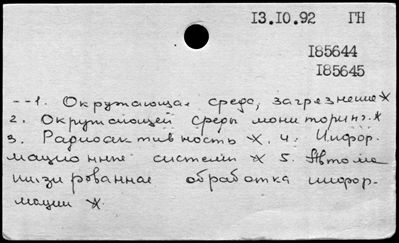 13.10.92 ГН
185644
185645
--1. Окружающая среда, загрезнение*
2. Окружающей среды мониторинг.*
3. Радиоактивность *. 4. Инфор-
мационные системы * 5. Автома
тизированная обработка инфор-
мации *